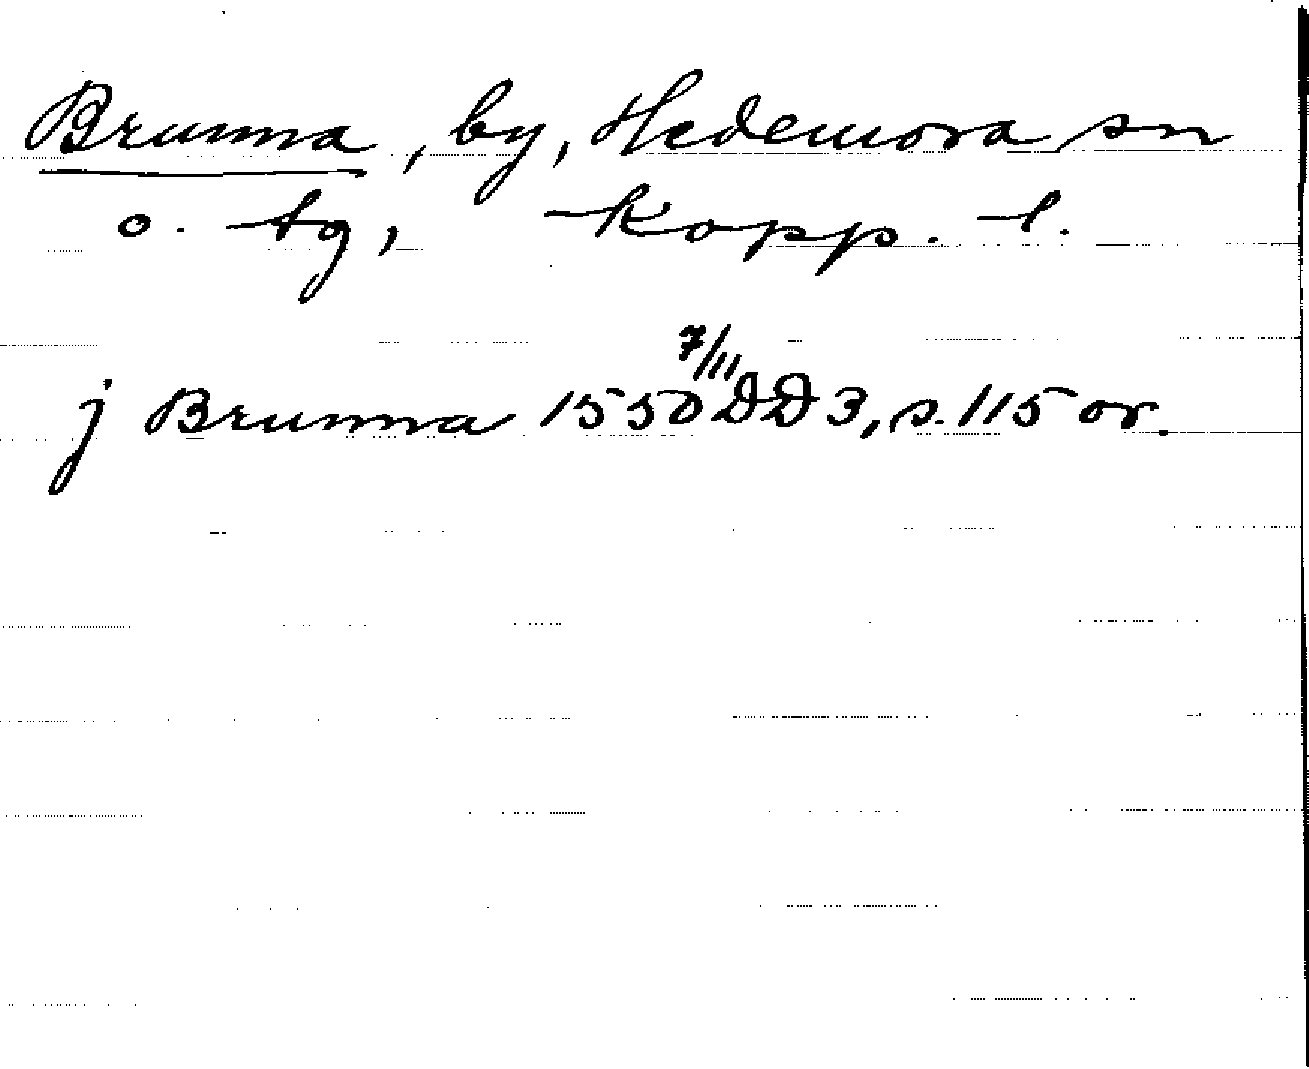 Brunna, by, Hedemora sn
o. tg, Kopp. l.
j Brunna 1550 7/11 DD 3, s. 115 or.